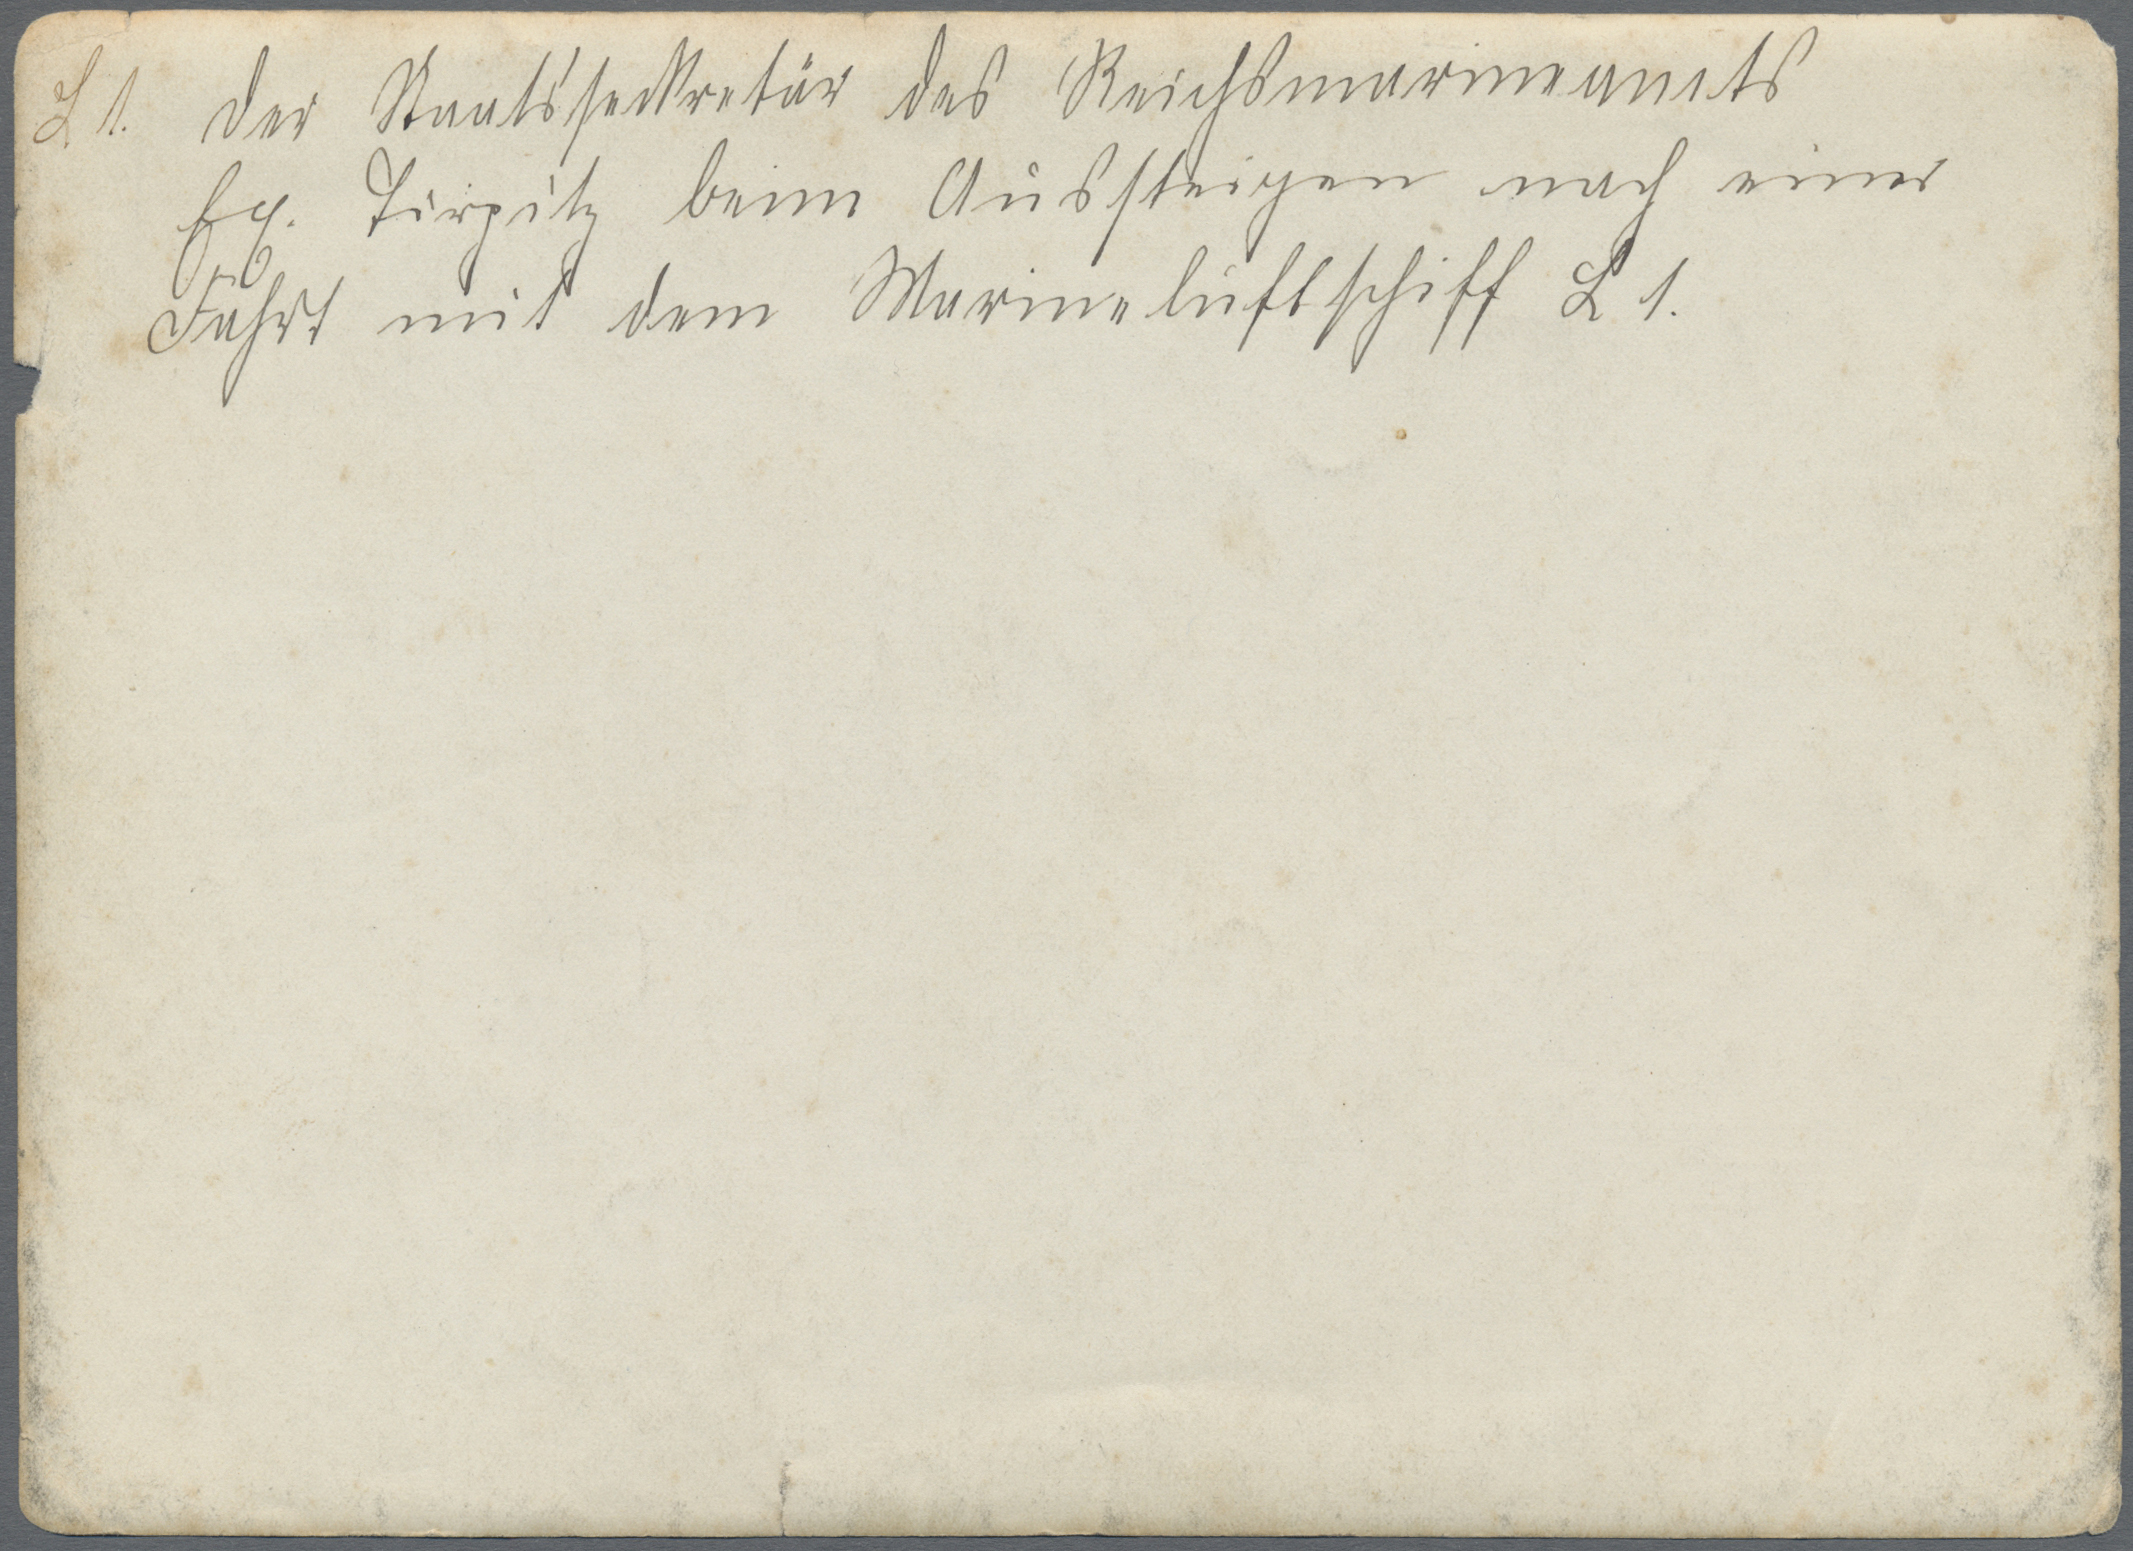 L 1. Der Staatssekretär des Reichsmarineamts
Ex. Tirpitz beim Aussteigen nach einer
Fahrt mit dem Marineluftschiff L 1.